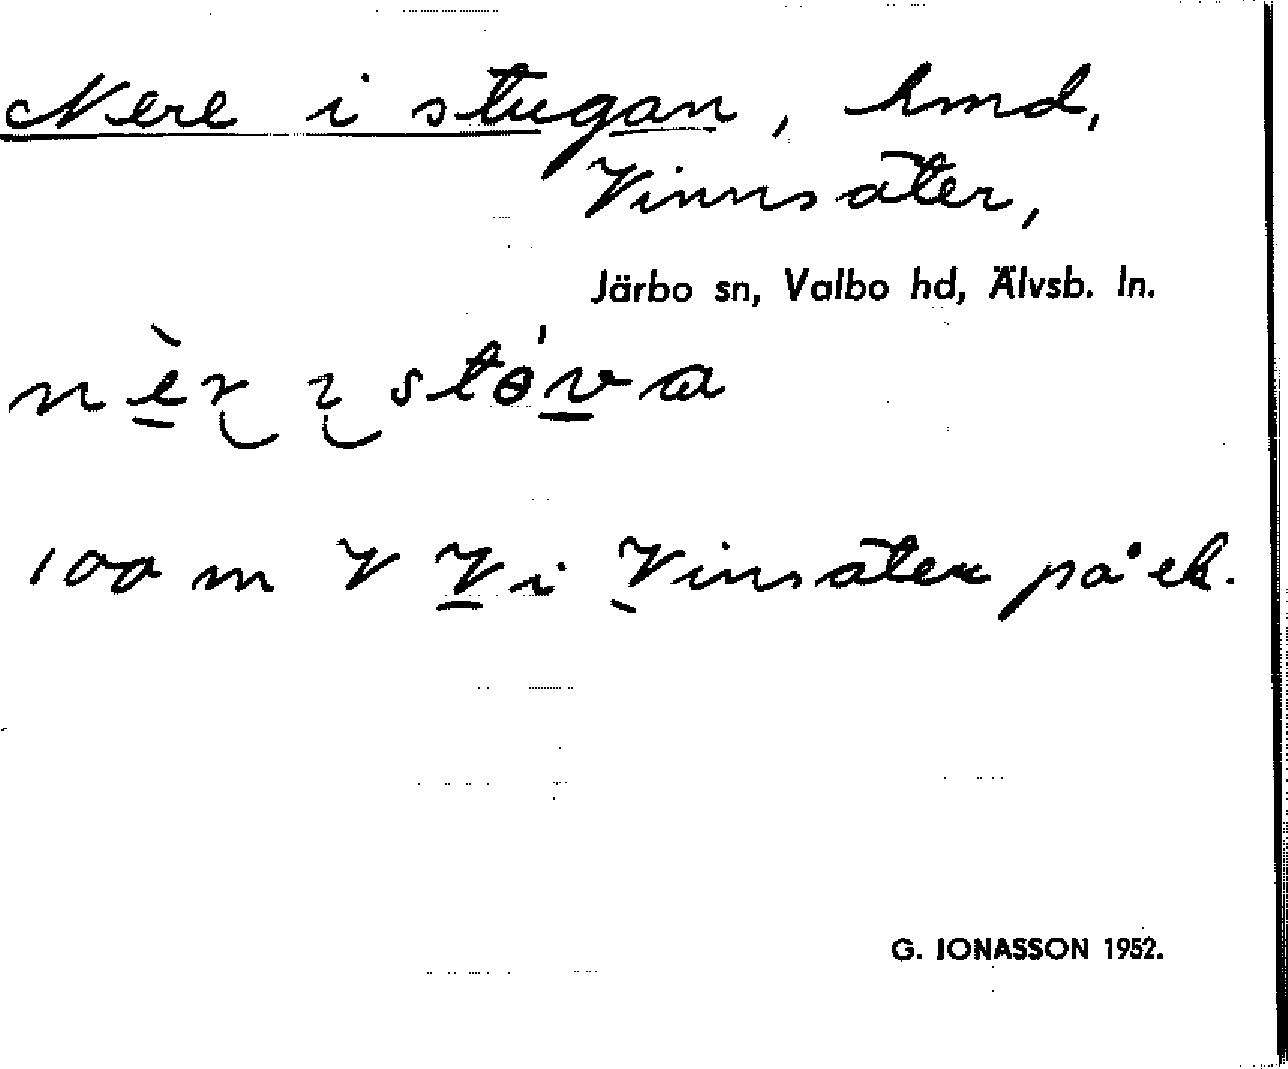 Nere i stugan, hmd,
Vinnsäter,
Järbo sn, Valbo hd, Älvsb. ln.
nèr ı stɵ́va
100 m V V i Vinsäter på ek.
G. JONASSON 1952.